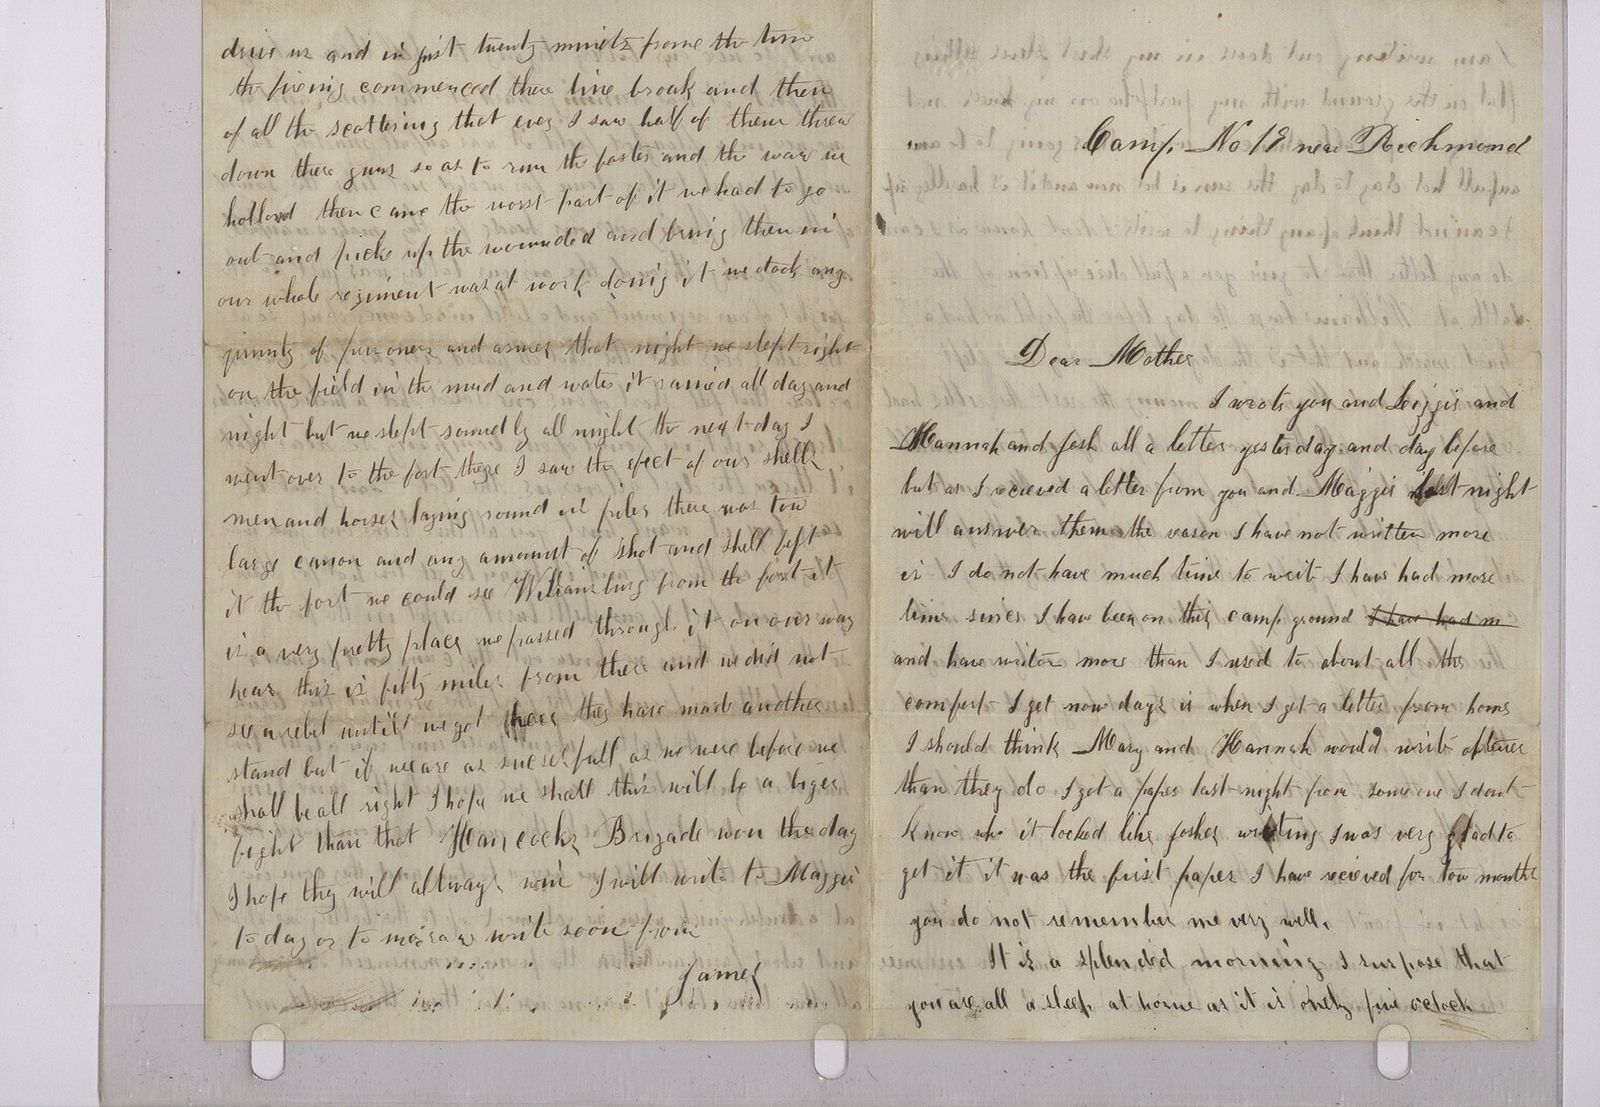 Camp No 18 near Richmond
Dear Mother
I wrote you and Lizzie and
Hannah and Josh all a letter yesterday and day before
but as I recieved a letter from you and Maggie last night
will answer them the reason I have not written more
is I do not have much time to write I have had more
time since I have been on this camp ground I have had m
and have writen more than I used to about all the
comfort I get now days is when I get a letter from home
I should think Mary and Hannah would write oftener
than they do I got a paper last night from some one I dont
know who it looked like Joshes writing I was very glad to
get it it was the first paper I have recieved for tow months
you do not remember me very well.
It is a splended morning I surpose that
you are all a sleep at home as it is onely five oclock
drive us and in just twenty minets frome the time
the fireing commenced there line broak and then
of all the scattering that ever I saw half of them threw
down there guns so as to run the faster and the way we
hollowd then came the worst part of it we had to go
out and pick up the wounded and bring them in
our whole regiment was at work doing it we took any
quinty of prisoners and armes that night we slept right
on the field in the mud and water it rained all day and
night but we slept soundly all night the next day I
went over to the fort there I saw the efect of our shells
men and horses laying round in piles there was tow
large canon and any amount of shot and shell left
it the fort we could see Williamsburg from the fort it
is a very pretty place we passed through it on our way
hear this is fifty miles from there and we did not
see a rebel untill we got here they have made another
stand but if we are as sucsesfull as we were before we
shall be all right I hope we shall this will be a biger
fight than that Hancocks Brigade won the day
I hope they will allways win I will write to Maggie
to day or to morrow write soon from
James